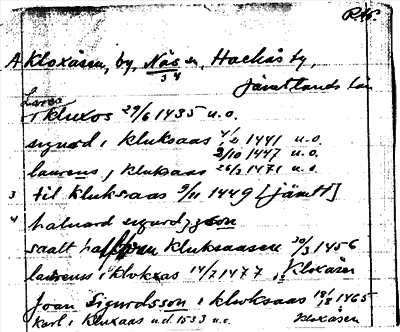 A Kloxåsen, by, Näs sn, Hackås ty,
34
Jämtlands län
Lares
i kluxos 29/6 1435 u.o.
sigurd i Kluksaas 4/2 1441 u.o.
2/10 1447 u.o.
laurens, i Kluksaas 26/2 1471 u.o.
3 til Kluksaas 9/11 1449 [jämt]
4 haluard sigurdzson
saalt Kluksaasen 30/3 1456
laurenss i kloksas 14/2 1477, Kloxåsen
Joan Sigurdsson i kloksaas 1465
Karl i Kluxaas u.d. 1533 u.o. Kloxåsen